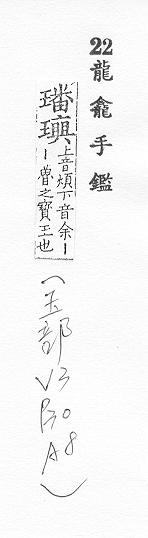 22 龍龕手鑑
璠璵上音煩下音余丨
丨魯之寶王也
(玉部 V3 P30 A8)